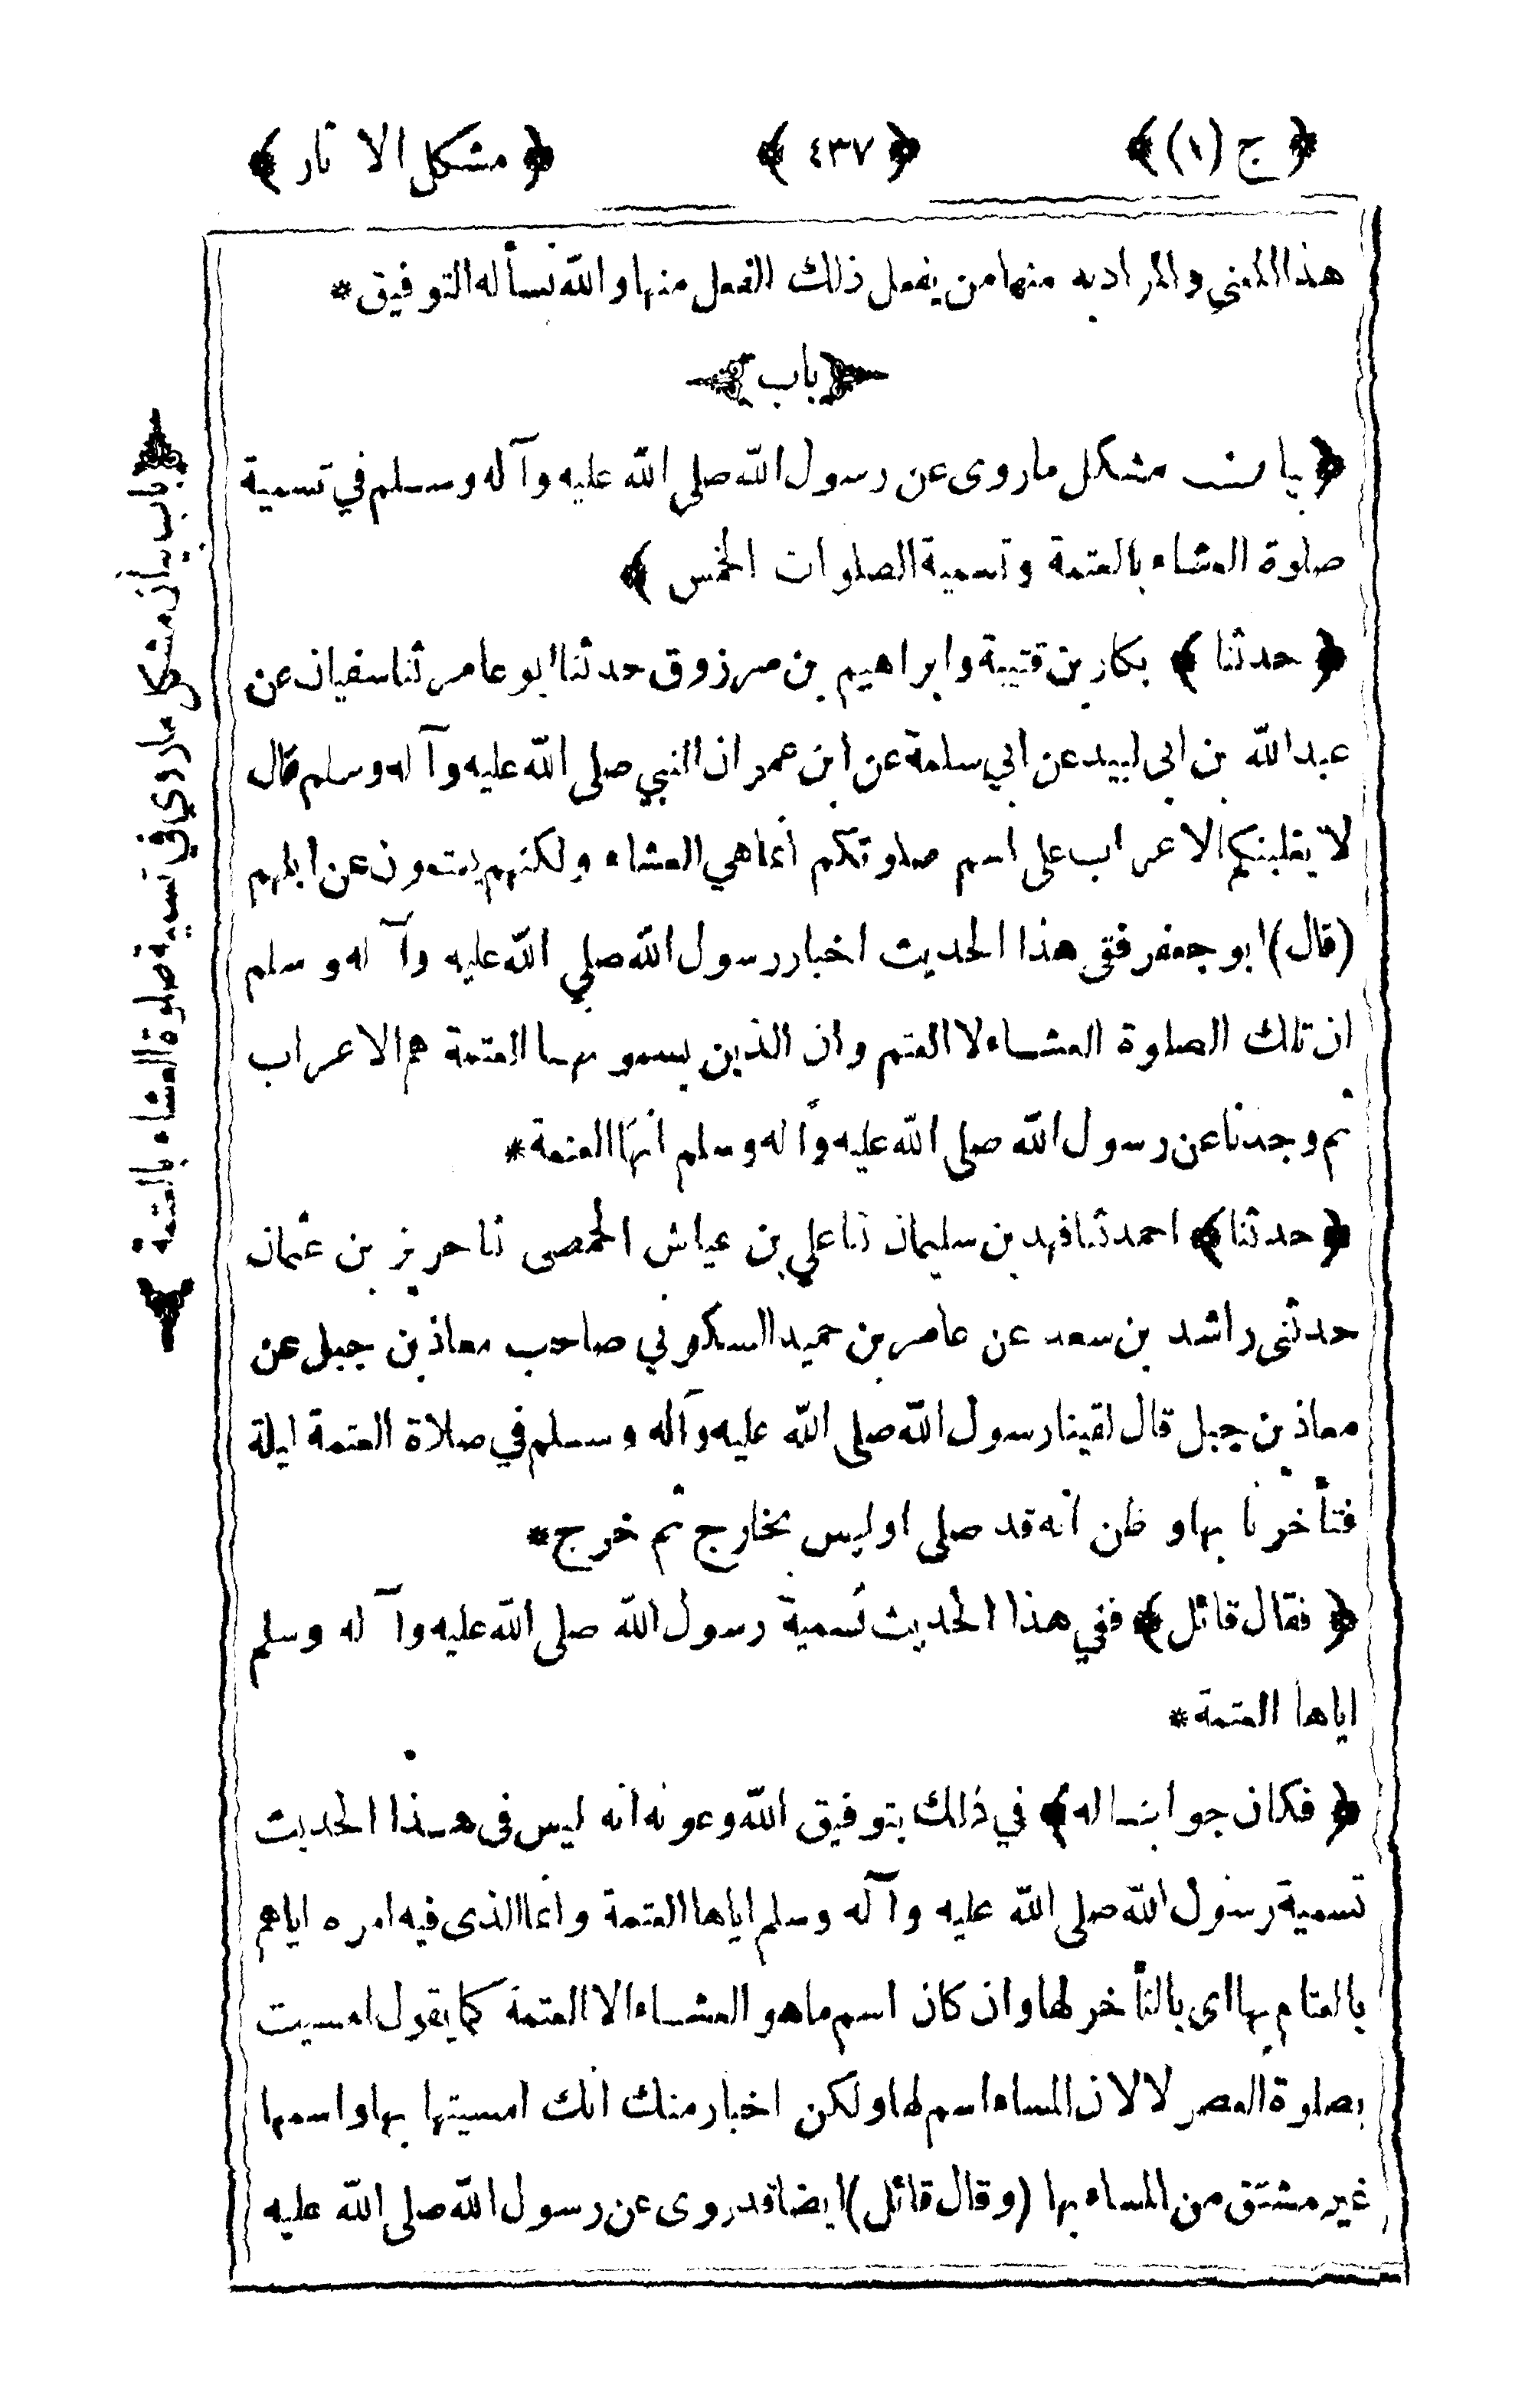 ﴿ ج (١) ﴾ ﴿ ٤٣٧ ﴾ ﴿ مشكل الاثار ﴾
هذا المعنى والمراد به منهامن يفعل ذلك الفعل منها والله نسأله التوفيق *
﴿ باب ﴾
﴿ بيان مشكل ماروى عن رسول الله صلى الله عليه وآله وسلم في تسمية
صلوة العشاء بالعتمة وتسمية الصلوات الخمس ﴾
﴿ حدثنا ﴾ بكار بن قتيبة وابراهيم بن مرزوق حدثنا ابو عامر ثنا سفيان عن
عبدالله بن ابى لبيد عن ابي سلمة عن ابن عمر ان النبي صلى الله عليه وآله وسلم قال
لا يغلبنكم الاعراب على اسم صلوتكم انما هي العشاء ولكنهم يعتمون عن ابلهم
(قال) ابو جعفر ففى هذا الحديث اخبار رسول الله صلي الله عليه وآله وسلم
ان تلك الصلوة العشاء لا العتم وان الذين يسمونها العتمة هم الاعراب
ثم وجدنا عن رسول الله صلى الله عليه وآله وسلم انها العتمة *
﴿ حدثنا ﴾ احمد ثنا فهد بن سليمان ثنا علي بن عياش الحمصى ثنا حريز بن عثمان
حدثنى راشد بن سعد عن عامر بن حميد السكوني صاحب معاذ بن جبل عن
معاذ بن جبل قال لقينا رسول الله صلى الله عليه وآله وسلم في صلاة العتمة ليلة
فتأخرنا بها وظن انه قد صلى او ليس بخارج ثم خرج *
﴿ فقال قائل ﴾ ففي هذا الحديث تسمية رسول الله صلى الله عليه وآله وسلم
اياها العتمة *
﴿ فكان جوابنا له ﴾ في ذلك بتوفيق الله وعونه انه ليس فى هذا الحديث
تسمية رسول الله صلى الله عليه وآله وسلم اياها العتمة وانما الذى فيه امره اياهم
بالعتام بها اى بالتأخر لها وان كان اسم ما هو العشاء الا العتمة كما يقول امسيت
بصلوة العصر لا لان المساء اسم لها ولكن اخبار منك انك امسيتها بها واسمها
غير مشتق من المساء بها (وقال قائل) ايضا قد روى عن رسول الله صلى الله عليه
باب بيان مشكل ماروي في تسمية صلوة العشاء بالعتمة